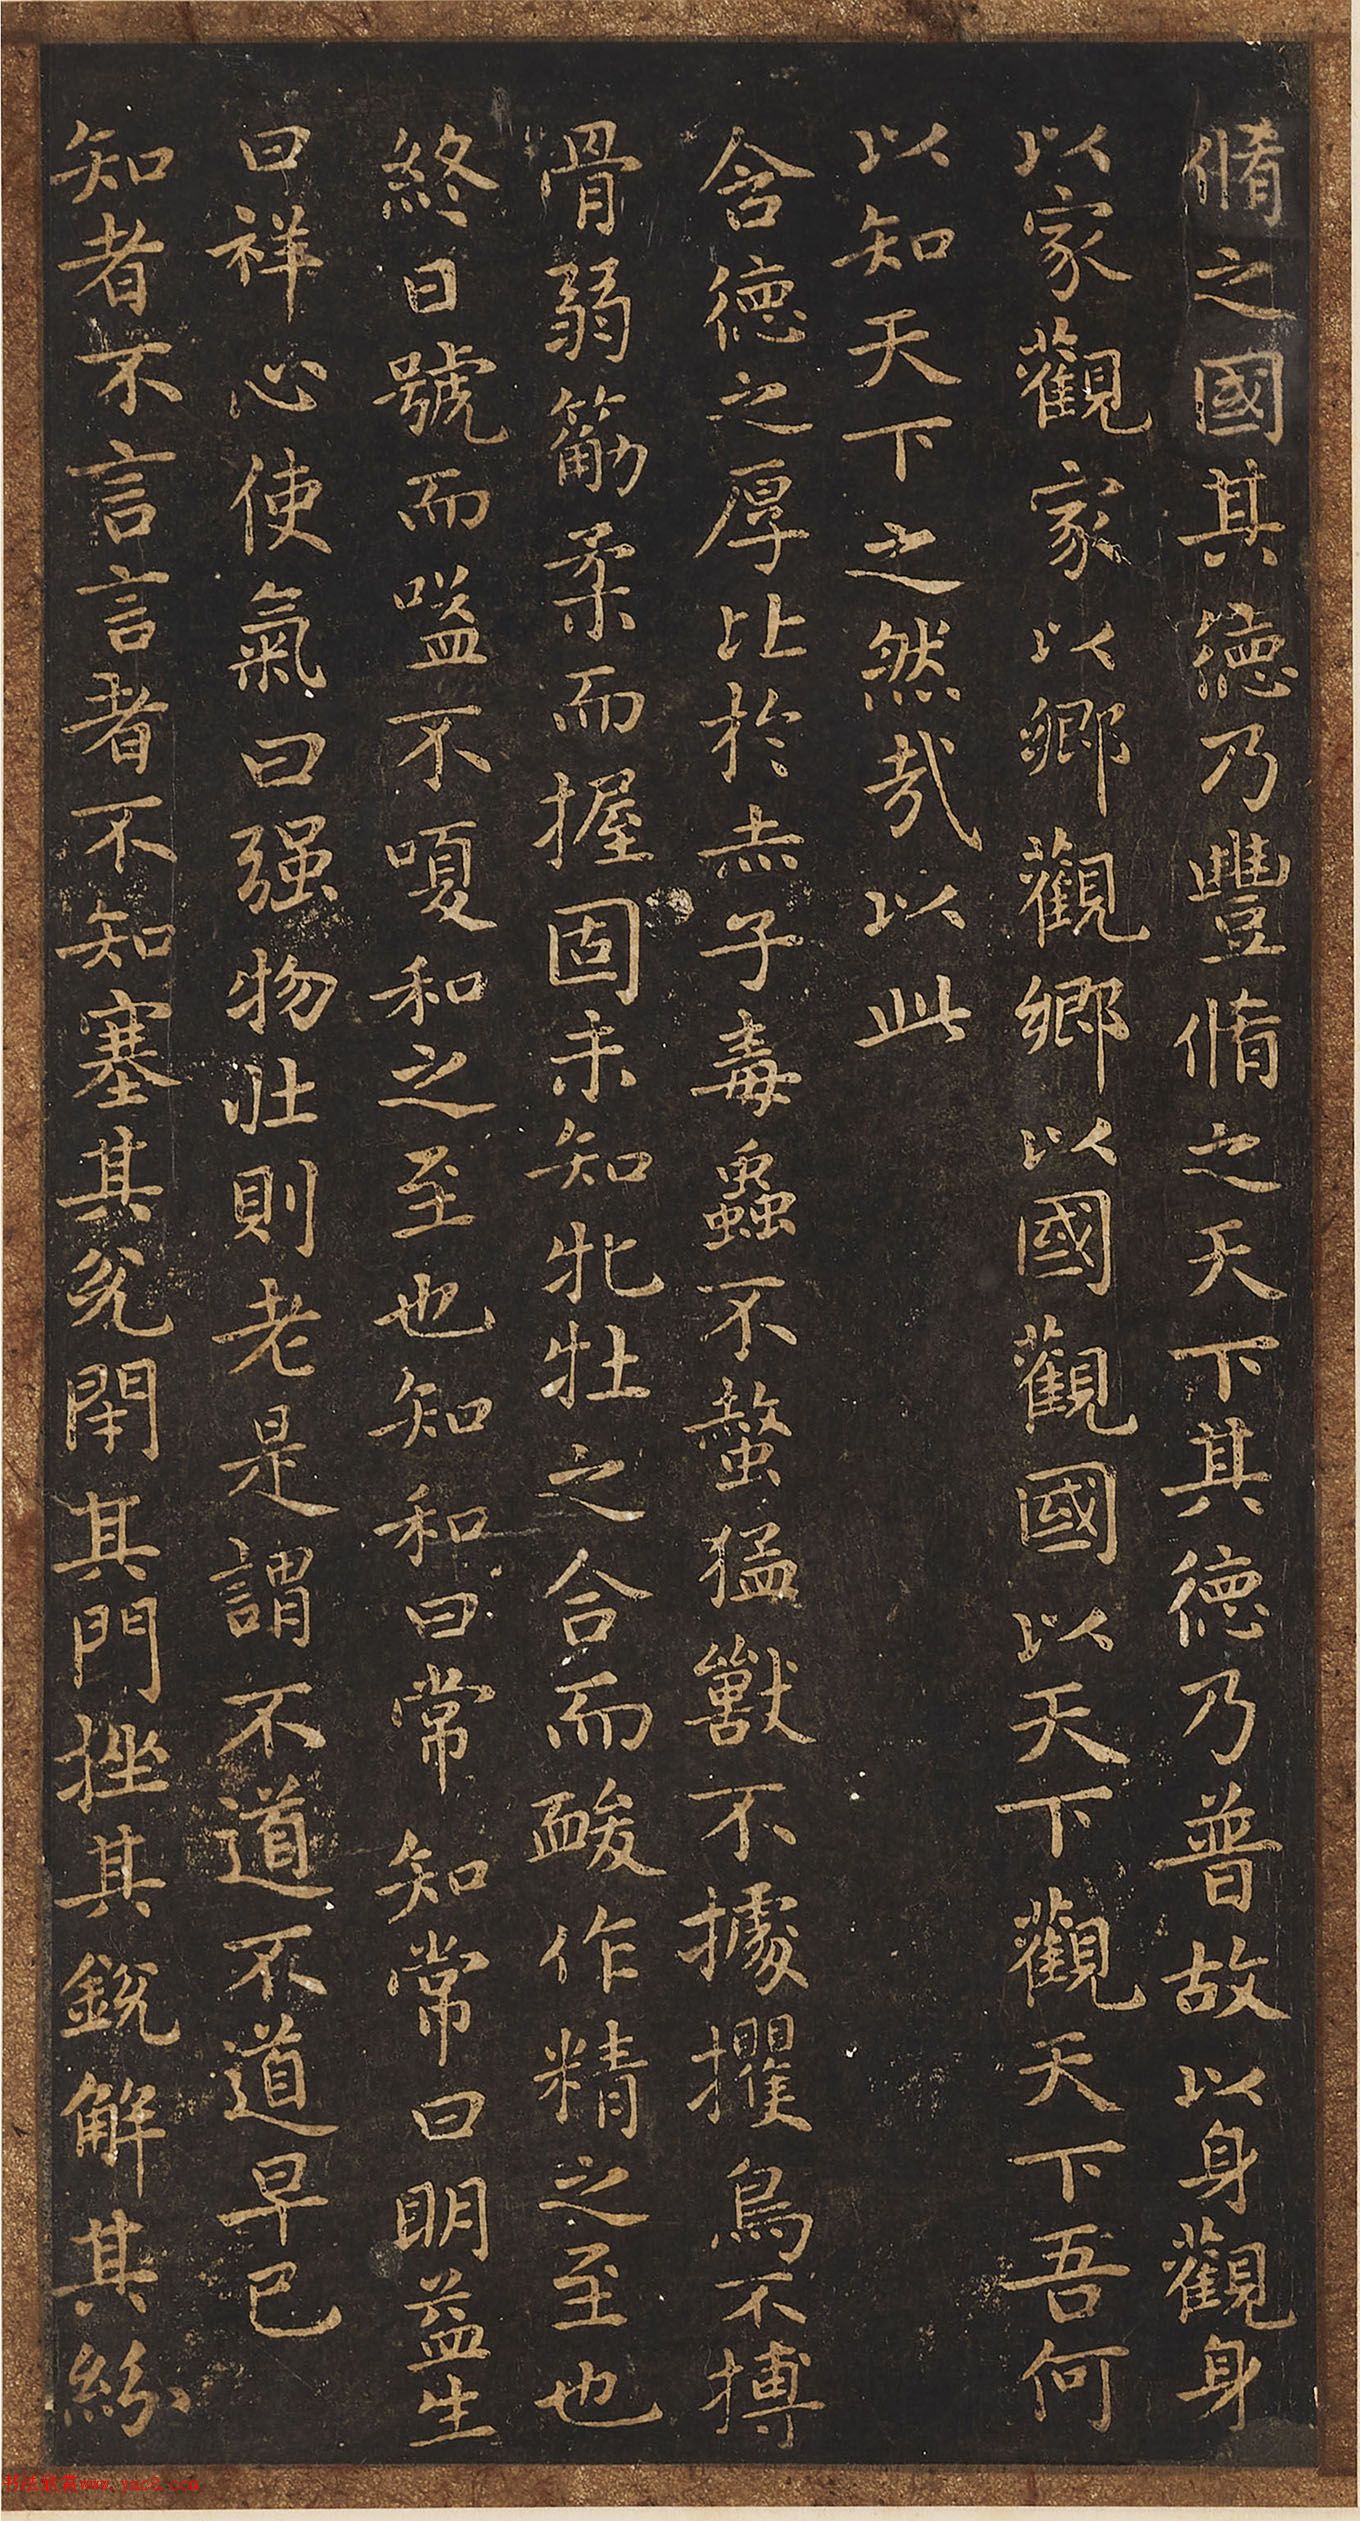 脩之國其德乃豐脩之天下其德乃普故以身觀身
以家觀家以鄉觀鄉以國觀國以天下觀天下吾何
以知天下之然哉以此
含德之厚比於赤子毒蟲不螫猛獸不據攫鳥不搏
骨弱筋柔而握固未知牝牡之合而酸作精之至也
終日號而嗌不嗄和之至也知和曰常知常曰明益生
曰祥心使氣曰强物壯則老是謂不道不道早已
知者不言言者不知塞其兌閉其門挫其銳解其紛
书法欣赏www.yac8.com